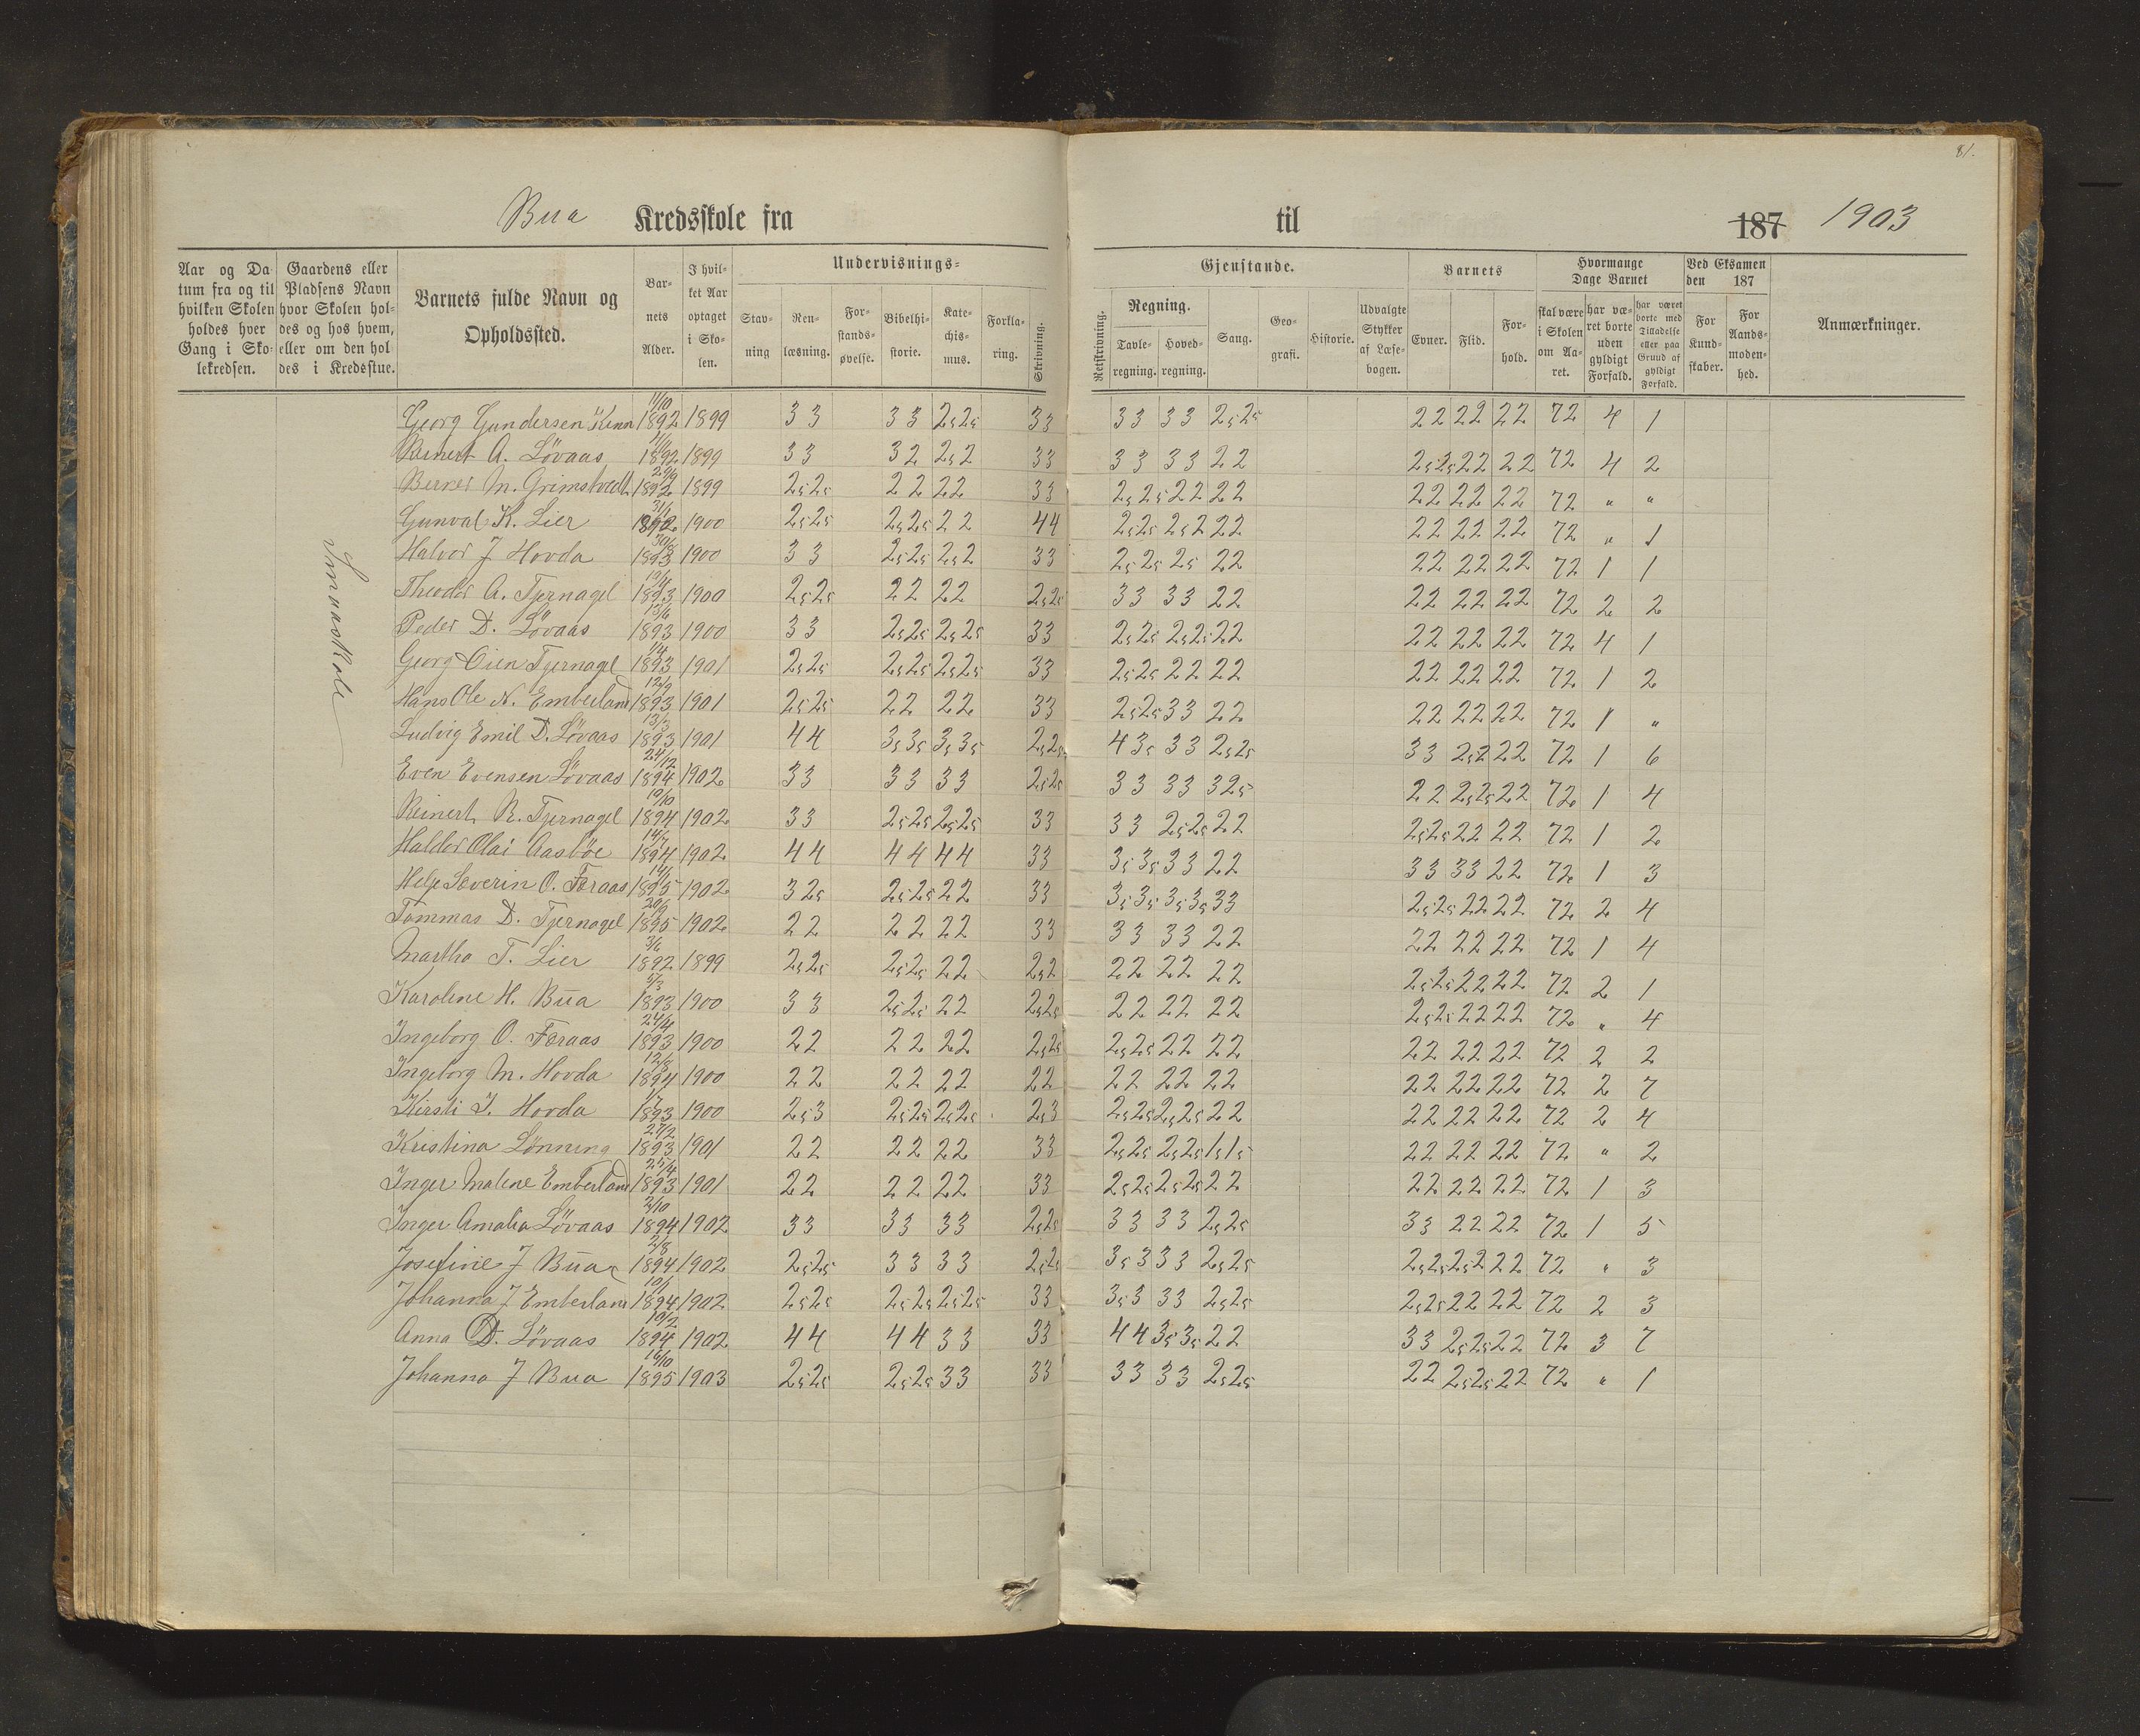 81.
Bua Kredsskole fra til 187 1903
Aar og Datum fra og til hvilken Skolen holdes hver Gang i Skolekredsen.
Gaardens eller Pladsens Navn hvor Skolen holdes og hos hvem, eller om den holdes i Kredsstue.
Barnets fulde Navn og Opholdssted.
Barnets Alder.
I hvilket Aar optaget i Skolen.
Undervisnings-
Stavning
Renlæsning.
Forstandsøvelse.
Bibelhistorie.
Katechismus.
Forklaring.
Skrivning.
Gjenstande.
Retskrivning.
Regning.
Tavleregning.
Hovedregning.
Sang.
Geografi.
Historie.
Udvalgte Stykker af Læsebogen.
Barnets
Evner.
Flid.
Forhold.
Hvormange Dage Barnet
skal være i Skolen om Aaret.
har været borte uden gyldigt Forfald.
har været borte med Tilladelse eller paa Grund af gyldigt Forfald.
Ved Eksamen den 187
For Kundskaber.
For Aandsmodenhed.
Anmærkninger.
Smaaskole
Georg Gundersen 11/10 1892 1899 33 33 2525 33 33 33 2525 22 22 22 72 4 1
A. Lövaas 1892 1899 33 32 252 33 33 33 22 22 22 72 4 2
Berner M. Grimstvedt 1892 1899 2525 22 22 33 2525 22 22 22 22 22 72 " "
Gunval K. Lier 1892 1900 2525 2525 22 44 2525 252 22 22 22 22 72 " 1
Halvor J Hovda 30/8 1893 1900 33 2525 252 33 2525 25 22 22 22 22 72 1 1
Theodor A. Tjernagel 1893 1900 2525 22 22 2525 33 33 22 22 22 22 72 2 2
Peder D. Lövaas 13/6 1893 1900 33 2525 2525 33 2525 2525 22 22 22 22 72 4 1
Georg Oien Tjernagel 1/4 1893 1901 2525 2525 2525 33 2525 22 22 22 22 22 72 1 2
Hans Ole N. Emberland 12/9 1893 1901 2525 22 22 33 2525 33 22 22 22 22 72 1 "
Ludvig Emil D. Lövaas 13/3 1893 1901 44 3535 3535 2525 435 33 2525 33 252 22 72 1 6
Even Evensen Lövaas 24/12 1894 1902 33 33 33 2525 33 33 325 22 2525 22 72 1 4
Reinert R. Tjernagel 19/10 1894 1902 33 2525 2525 33 33 2525 22 2525 22 22 72 1 2
Haldor Olai Aasböe 14/7 1894 1902 44 44 44 33 3535 33 22 33 33 22 72 1 3
Helje Severin O. Færaas 1895 1902 325 2525 22 33 3535 3535 33 2525 22 22 72 2 4
Tommas D. Tjernagel 20/9 1895 1902 22 22 22 33 33 33 22 22 22 22 72 1 4
Martha T. Lier 3/6 1892 1899 2525 2525 22 252 22 22 22 2525 22 22 72 2 1
Karoline H. Bua 5/3 1893 1900 33 2525 22 2525 22 22 22 2525 22 22 72 " 4
Ingeborg O. Færaas 24/4 1893 1900 22 22 22 2525 2525 22 22 22 22 22 72 2 2
Ingeborg M. Hovda 12/8 1894 1900 22 22 22 22 22 22 22 22 22 22 72 2 7
Kirsti J. Hovda 1893 1900 253 2525 2525 253 2525 2525 22 22 22 22 72 2 4
Kristina Lönning 27/2 1893 1901 22 22 22 33 2525 2525 1515 22 22 22 72 " 2
Inger Malene Emberland 25/4 1893 1901 22 22 22 33 2525 2525 22 22 22 22 72 1 3
Inger Amalia Lövaas 2/10 1894 1902 33 33 33 2525 33 33 2525 33 22 22 72 1 5
Josefine J Bua 2/8 1894 1902 2525 33 33 2525 353 33 2525 2525 252 22 72 " 3
Johanna J Emberland 10/1 1894 1902 2525 2525 2525 33 353 33 2525 2525 22 22 72 2 3
Anna D. Lövaas 19/2 1894 1902 44 44 33 33 44 3535 22 33 2525 22 72 3 7
Johanna J Bua 16/10 1895 1903 2525 2525 33 33 33 33 2525 22 2525 22 72 " 1